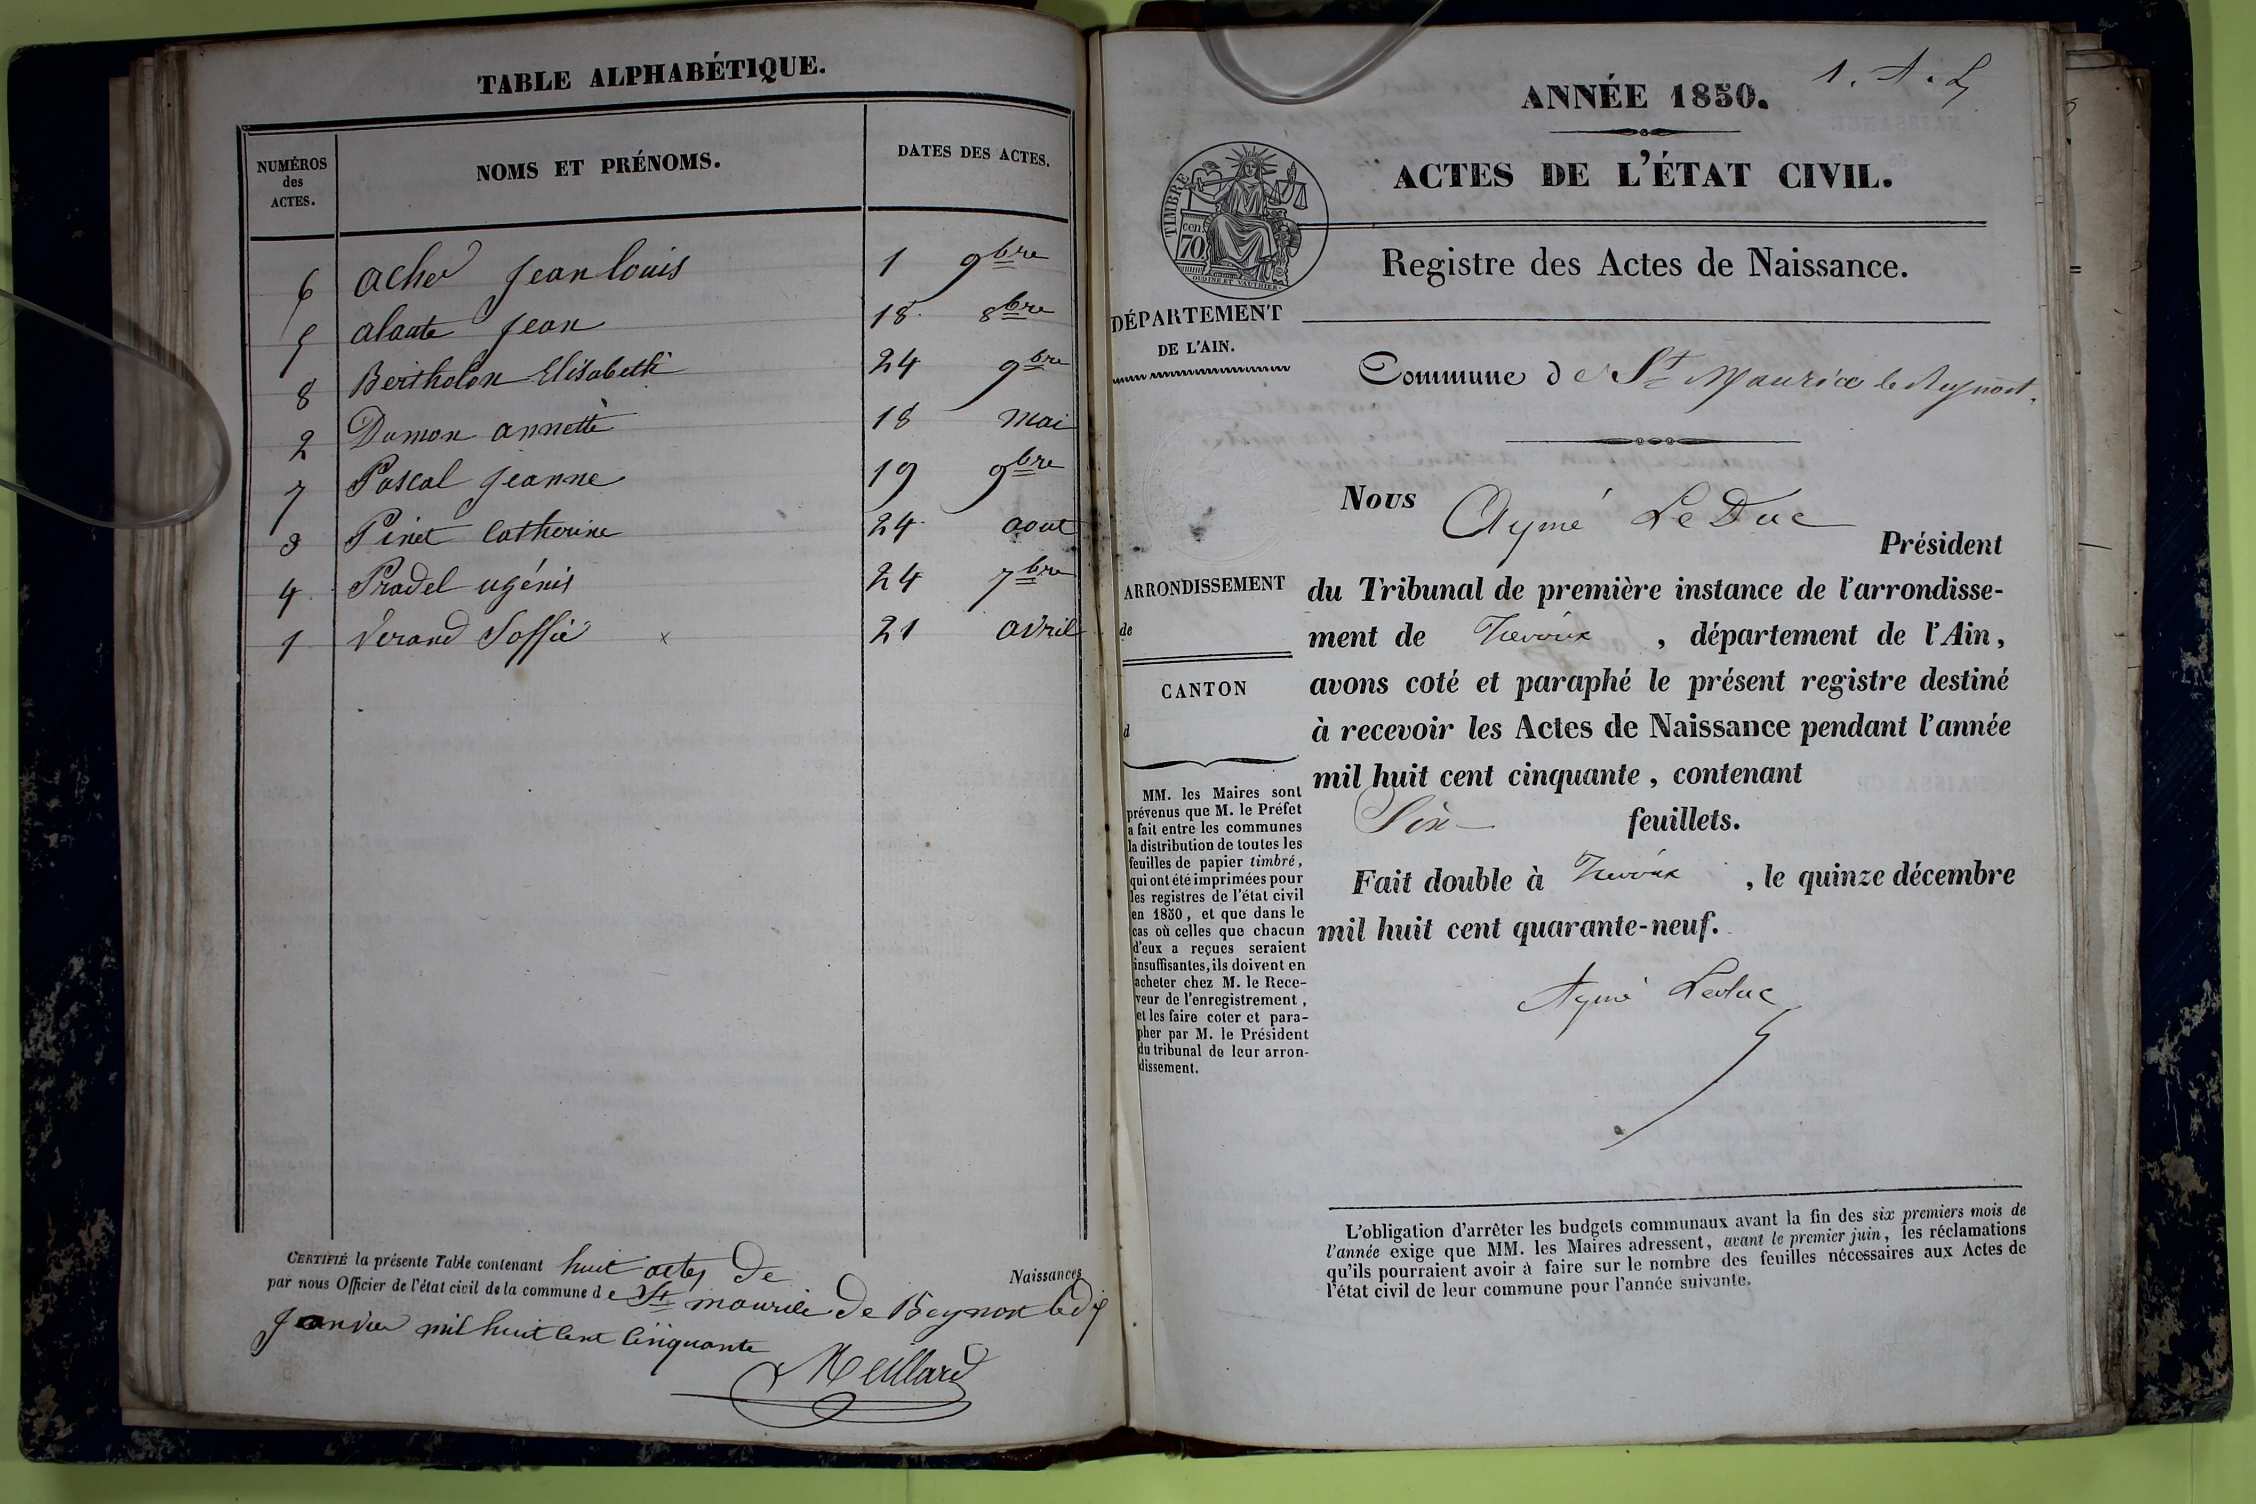 TABLE ALPHABÉTIQUE.
NUMÉROS
des
ACTES.
NOMS ET PRÉNOMS.
DATES DES ACTES.
6 Jean Louis 1 9bre
5 Jean 18 8bre
8 Bertholon Elisabeth 24 9bre
2 Dumon annette 18 mai
7 Pascal Jeanne 19 9bre
3 Pinet Catherine 24 aout
4 Pradel ugénis 24 7bre
1 Verand Soffie x 21 avril
CERTIFIÉ la présente Table contenant huit actes de Naissances
par nous Officier de l'état civil de la commune de St maurice de Beynost le dix
Janvier mil huit cent cinquante
Meillard
1. A. L
ANNÉE 1850.
ACTES DE L'ÉTAT CIVIL.
TIMBRE
cen.
70
OUDINÉ ET VAUTHIER
Registre des Actes de Naissance.
DÉPARTEMENT
DE L'AIN.
Commune de St Maurice de Beynost.
Nous Aymé LeDuc Président
ARRONDISSEMENT
de
du Tribunal de première instance de l'arrondisse-
ment de Trevoux , département de l'Ain,
avons coté et paraphé le présent registre destiné
à recevoir les Actes de Naissance pendant l'année
mil huit cent cinquante, contenant
Six feuillets.
Fait double à Trevoux , le quinze décembre
mil huit cent quarante-neuf.
Aymé Leduc
CANTON
d
MM. les Maires sont
prévenus que M. le Préfet
a fait entre les communes
la distribution de toutes les
feuilles de papier timbré,
qui ont été imprimées pour
les registres de l'état civil
en 1850, et que dans le
cas où celles que chacun
d'eux a reçues seraient
insuffisantes, ils doivent en
acheter chez M. le Rece-
veur de l'enregistrement,
et les faire coter et para-
pher par M. le Président
du tribunal de leur arron-
dissement.
L'obligation d'arrêter les budgets communaux avant la fin des six premiers mois de
l'année exige que MM. les Maires adressent, avant le premier juin, les réclamations
qu'ils pourraient avoir à faire sur le nombre des feuilles nécessaires aux Actes de
l'état civil de leur commune pour l'année suivante.